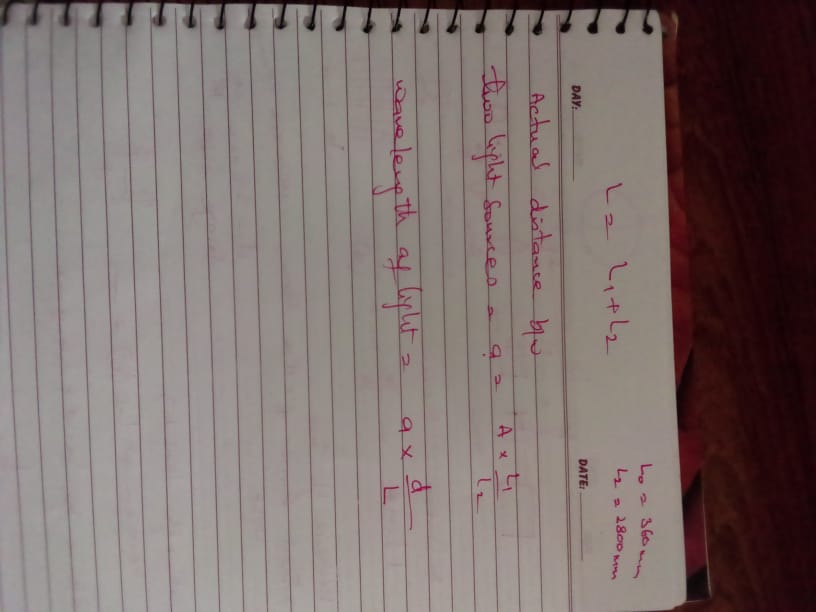 L₀ = 360mm
L₂ = 2800mm
L = L₁ + L₂
DAY:
DATE:
Actual distance b/w
two light sources = a = A × L₁/L₂
wavelength of light = a × d/L